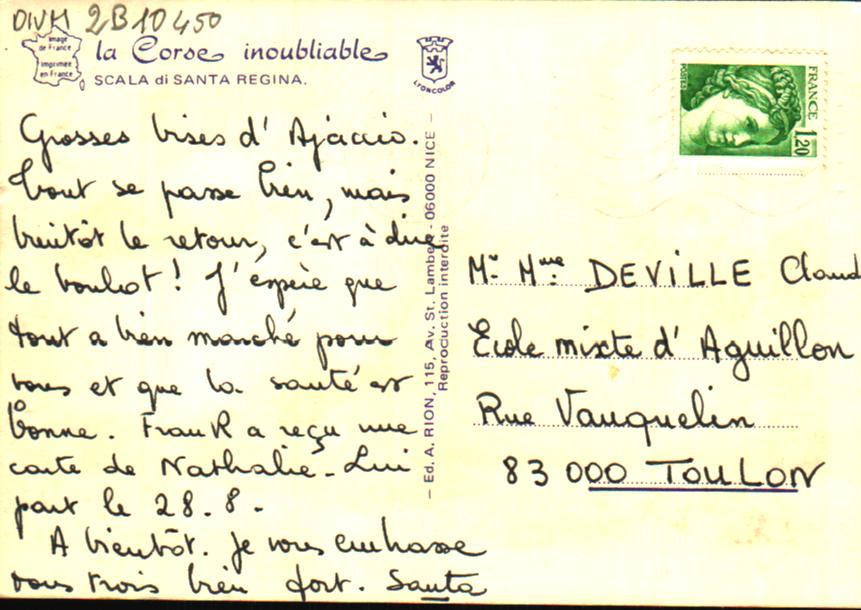 DIVM 2B10450
Image
de France
Imprimée
en France
la Corse inoubliable
SCALA di SANTA REGINA.
LYONCOLOR
Grosses bises d'Ajaccio.
Tout se passe bien, mais
bientôt le retour, c'est à dire
le boulot ! J'espère que
tout a bien marché pour
vous et que la santé est
bonne. Franck a reçu une
carte de Nathalie. Lui
part le 28.8.
A bientôt. Je vous embrasse
vous trois bien fort. Santa
— Ed. A. RION, 115, Av. St. Lambert - 06000 NICE —
Reproduction interdite
FRANCE
1,20
POSTES
Mr. Mme. DEVILLE Claud
Ecole mixte d'Aguillon
Rue Vauquelin
83 000 TOULON